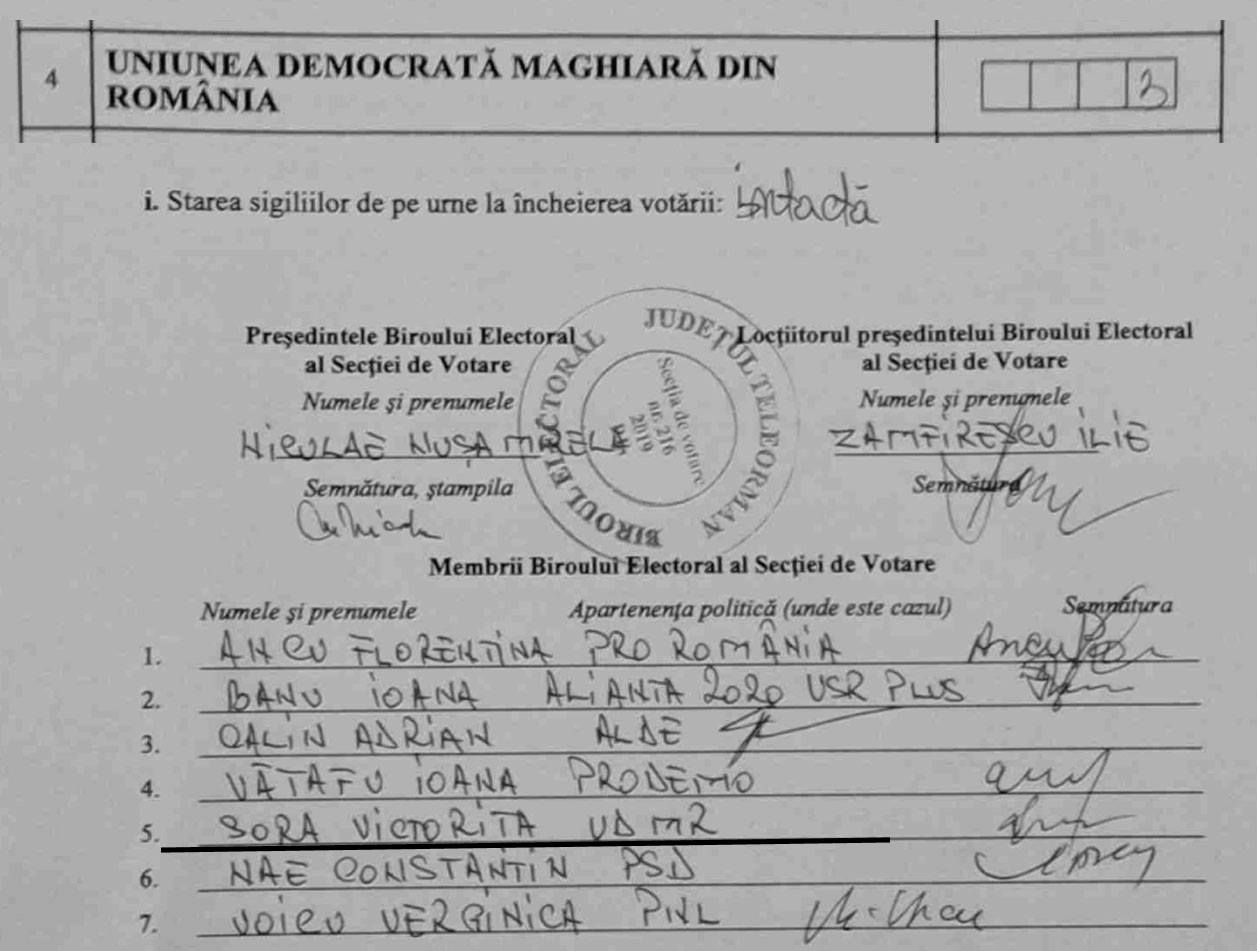 4
UNIUNEA DEMOCRATĂ MAGHIARĂ DIN
ROMÂNIA
3
i. Starea sigiliilor de pe urne la încheierea votării: intactă
Președintele Biroului Electoral
al Secției de Votare
Numele și prenumele
NICULAE NUȘA MIRELA
Semnătura, ștampila
BIROUL ELECTORAL
JUDEȚUL TELEORMAN
Secția de votare
nr. 216
2019
Locțiitorul președintelui Biroului Electoral
al Secției de Votare
Numele și prenumele
ZAMFIRESCU ILIE
Semnătura
Membrii Biroului Electoral al Secției de Votare
Numele și prenumele Apartenența politică (unde este cazul) Semnătura
1. ANCU FLORENTINA PRO ROMÂNIA
2. BANU IOANA ALIANTA 2020 USR PLUS
3. CALIN ADRIAN ALDE
4. VĂTAFU IOANA PRODEMO
5. SORA VICTORITA UDMR
6. NAE CONSTANTIN PSD
7. VOICU VERGINICA PNL